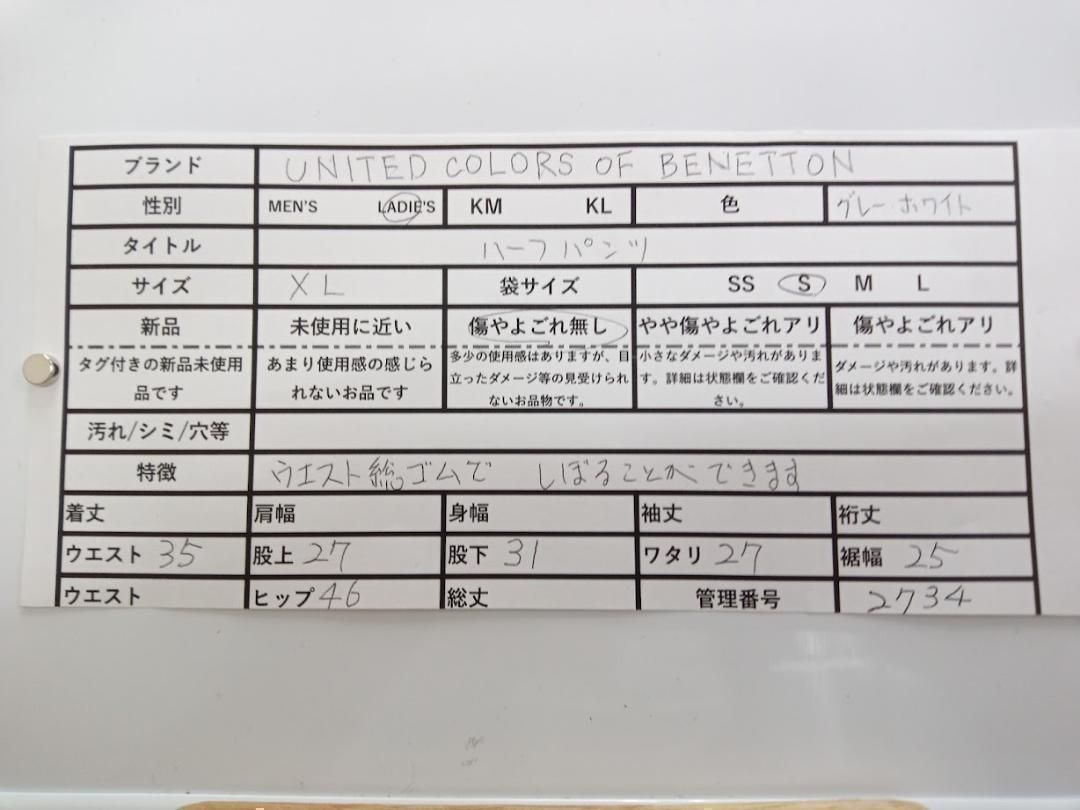 ブランド UNITED COLORS OF BENETTON
性別 MEN'S LADIE'S KM KL 色 グレー・ホワイト
タイトル ハーフパンツ
サイズ XL 袋サイズ SS S M L
新品 未使用に近い 傷やよごれ無し やや傷やよごれアリ 傷やよごれアリ
タグ付きの新品未使用
品です
あまり使用感の感じら
れないお品です
多少の使用感はありますが、目
立ったダメージ等の見受けられ
ないお品物です。
小さなダメージや汚れがありま
す。詳細は状態欄をご確認くだ
さい。
ダメージや汚れがあります。詳
細は状態欄をご確認ください。
汚れ/シミ/穴等
特徴 ウエスト総ゴムで しぼることができます
着丈 肩幅 身幅 袖丈 裄丈
ウエスト 35 股上 27 股下 31 ワタリ 27 裾幅 25
ウエスト ヒップ 46 総丈 管理番号 2734